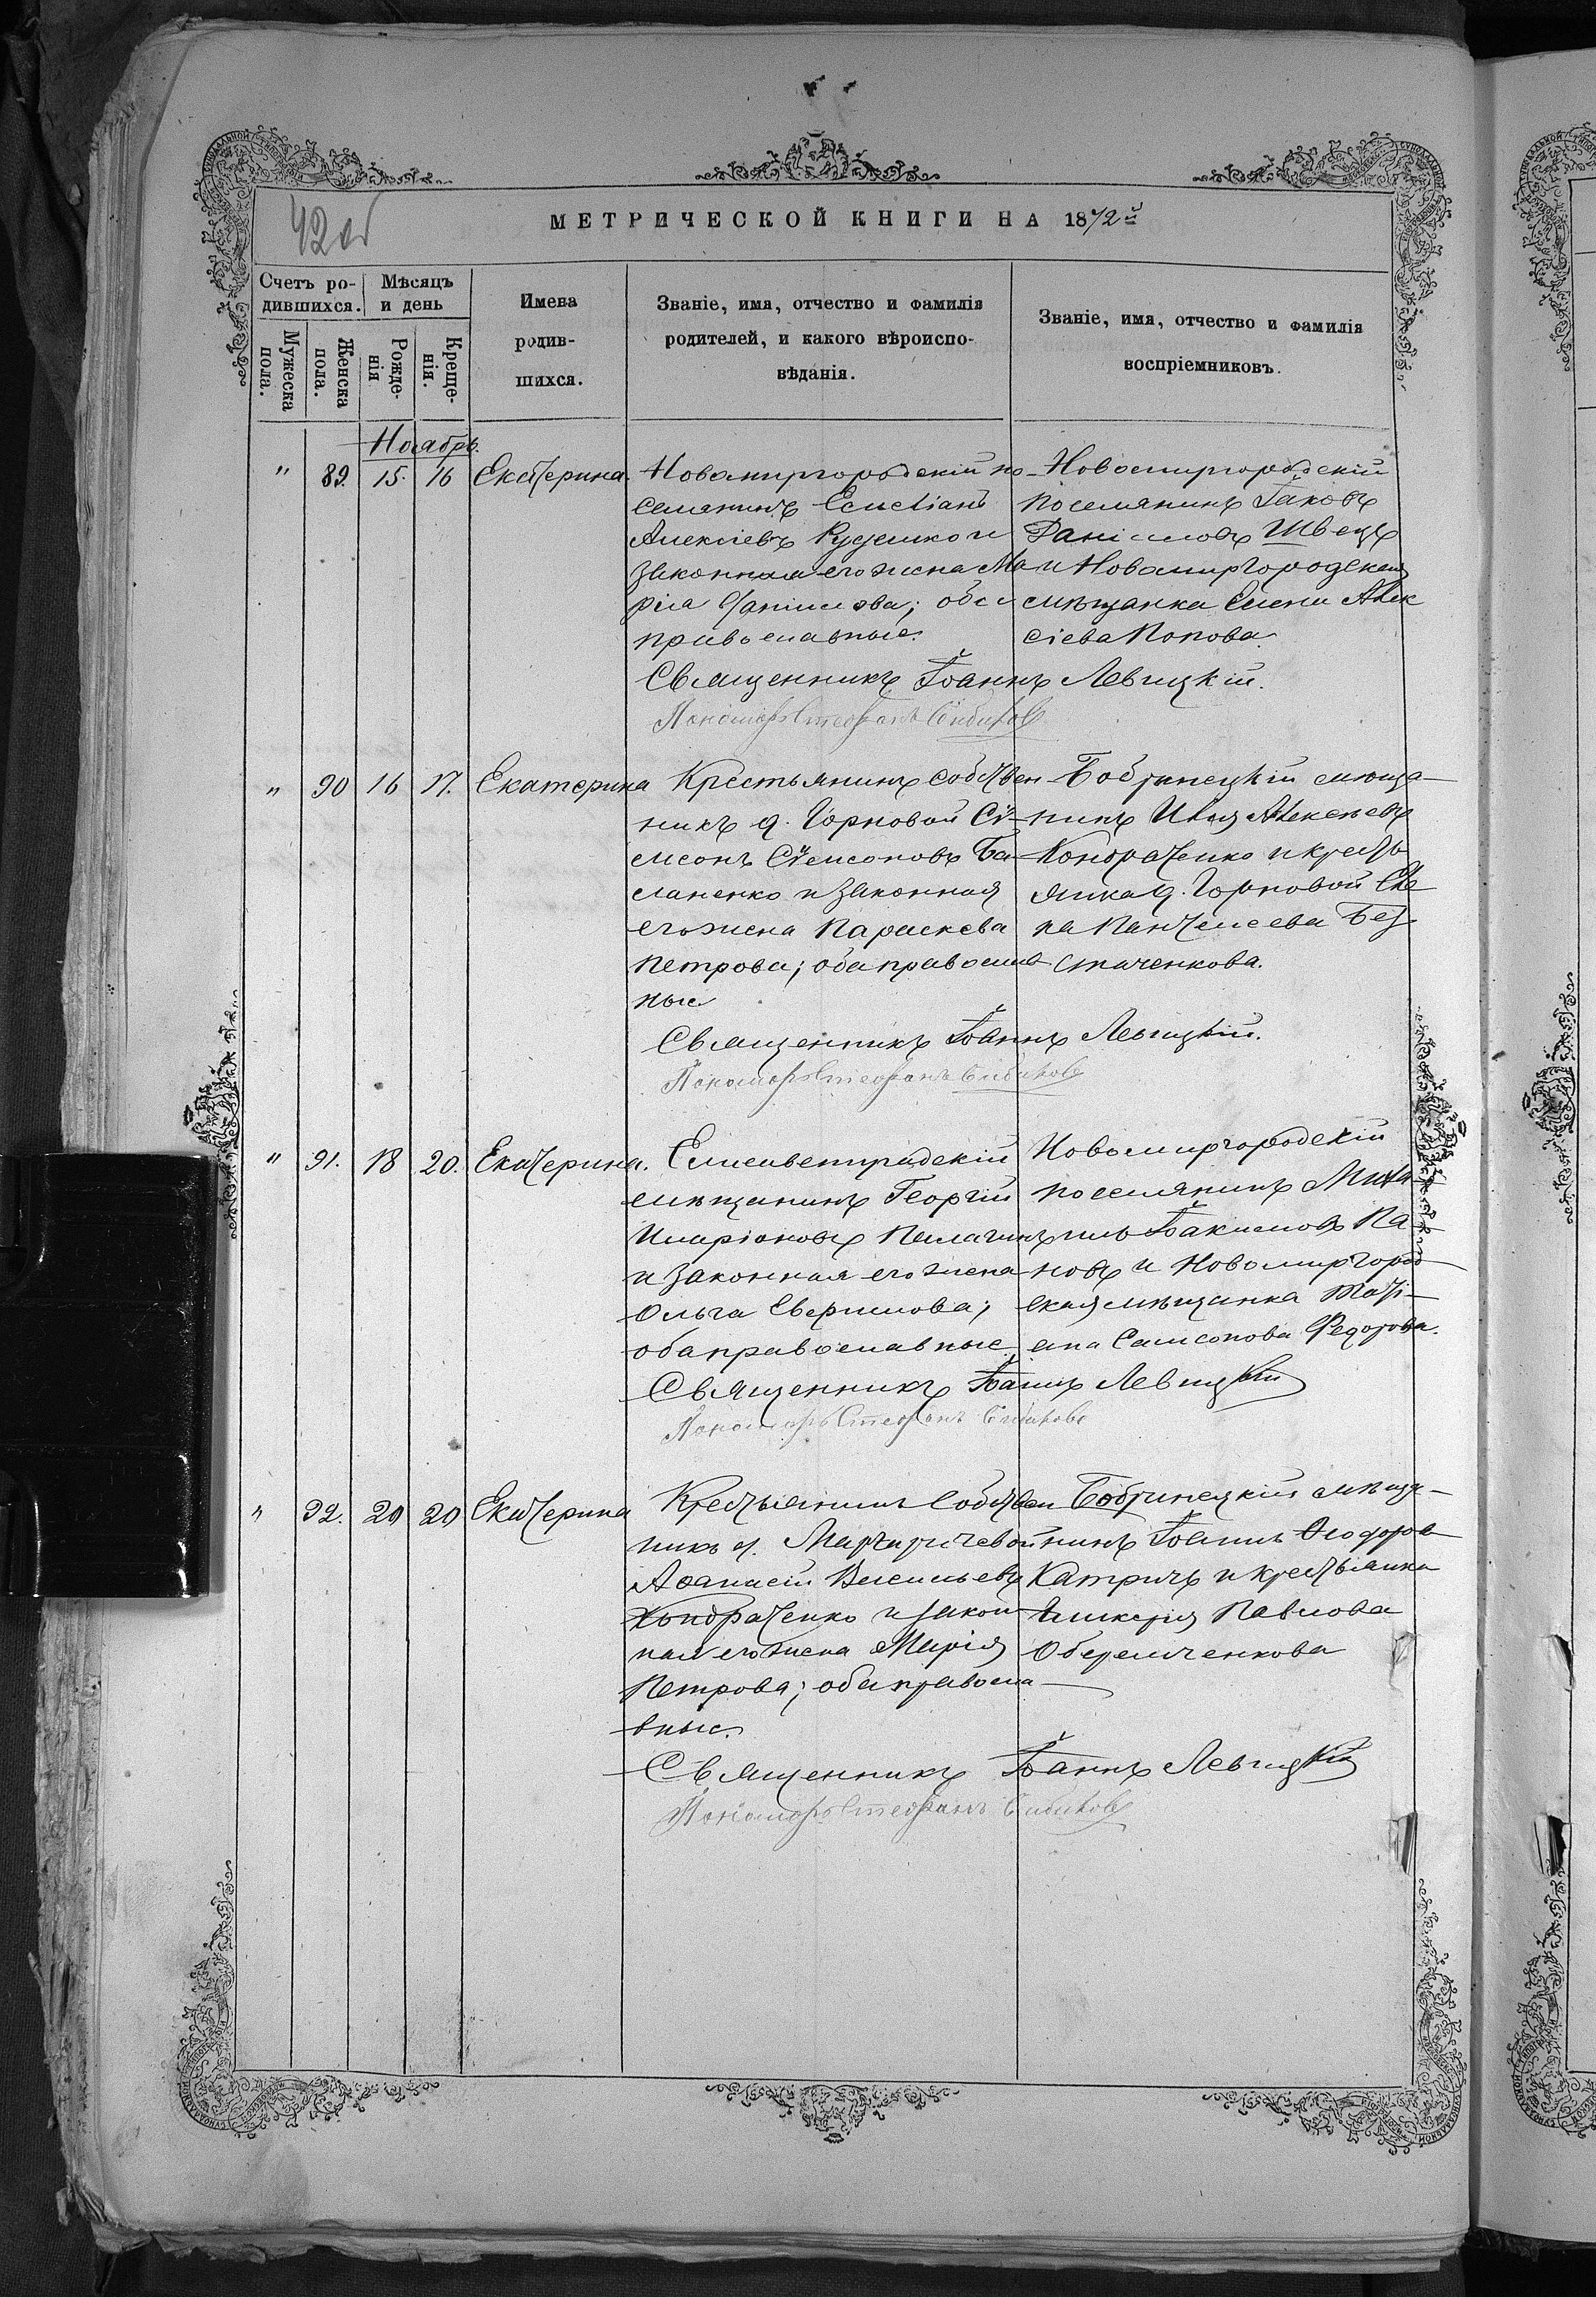 42 об
МЕТРИЧЕСКОЙ КНИГИ НА 1872й
Счетъ ро-
дившихся.
Мѣсяцъ
и день
Имена
родив-
шихся.
Званіе, имя, отчество и фамилія
родителей, и какого вѣроиспо-
вѣданія.
Званіе, имя, отчество и фамилія
воспріемниковъ.
Мужеска
пола.
Женска
пола.
Рожде-
нія
Креще-
нія.
Ноябрь.
" 89. 15. 16 Екатерина.
Новомиргородскій по-
селянинъ Емеліанъ
Алексіевъ Руденко и
законная его жена Ма
рія Даніилова; оба
православные.
Новомиргородскій
поселянинъ Іаковъ
Даніиловъ Швецъ
и Новомиргородская
мѣщанка Елена Алек
сіева Попова.
Священникъ Іоаннъ Левицкій.
Пономарь Стефанъ Бибиковъ
" 90 16 17. Екатерина
Крестьянинъ собствен
никъ д. Торновой Си-
меонъ Симеоновъ Ба-
ланенко и законная
его жена Параскева
Петрова; оба православ
ные
Бобринецкій мѣща-
нинъ Илья Алексѣевъ
Кондратенко и кресть
янка д. Торновой Еле
на Пантелеева Без
Священникъ Іоаннъ Левицкій.
Пономарь Стефанъ Бибиковъ
" 91. 18 20. Екатерина.
Елисаветградскій
мѣщанинъ Георгій
Иларіоновъ
и законная его жена
Ольга Евфимова;
оба православные
Новомиргородскій
поселянинъ Миха
илъ Іакимовъ Па-
новъ и Новомиргород
ская мѣщанка Таті-
ана Самсонова Федорова.
Священникъ Іоаннъ Левицкій
Пономарь Стефанъ Бибиковъ
" 92. 20 20 Екатерина
Крестьянинъ собствен
никъ д. Мартыничевой
Аѳанасій Васильевъ
Кондратенко и закон
ная его жена Марія
Петрова; оба правосла
вные.
Бобринецкій мѣща-
нинъ Іоаннъ Ѳеодоров
Катричъ и крестьянка
Гликерія Павлова
Оберемченкова
Священникъ Іоаннъ Левицкій
Пономарь Стефанъ Бибиковъ